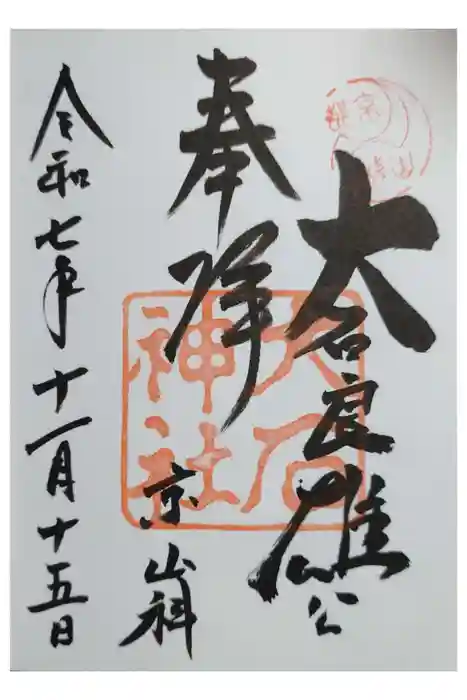 大石良雄公
奉拝
京山科
令和七年十一月十五日
大石
神社